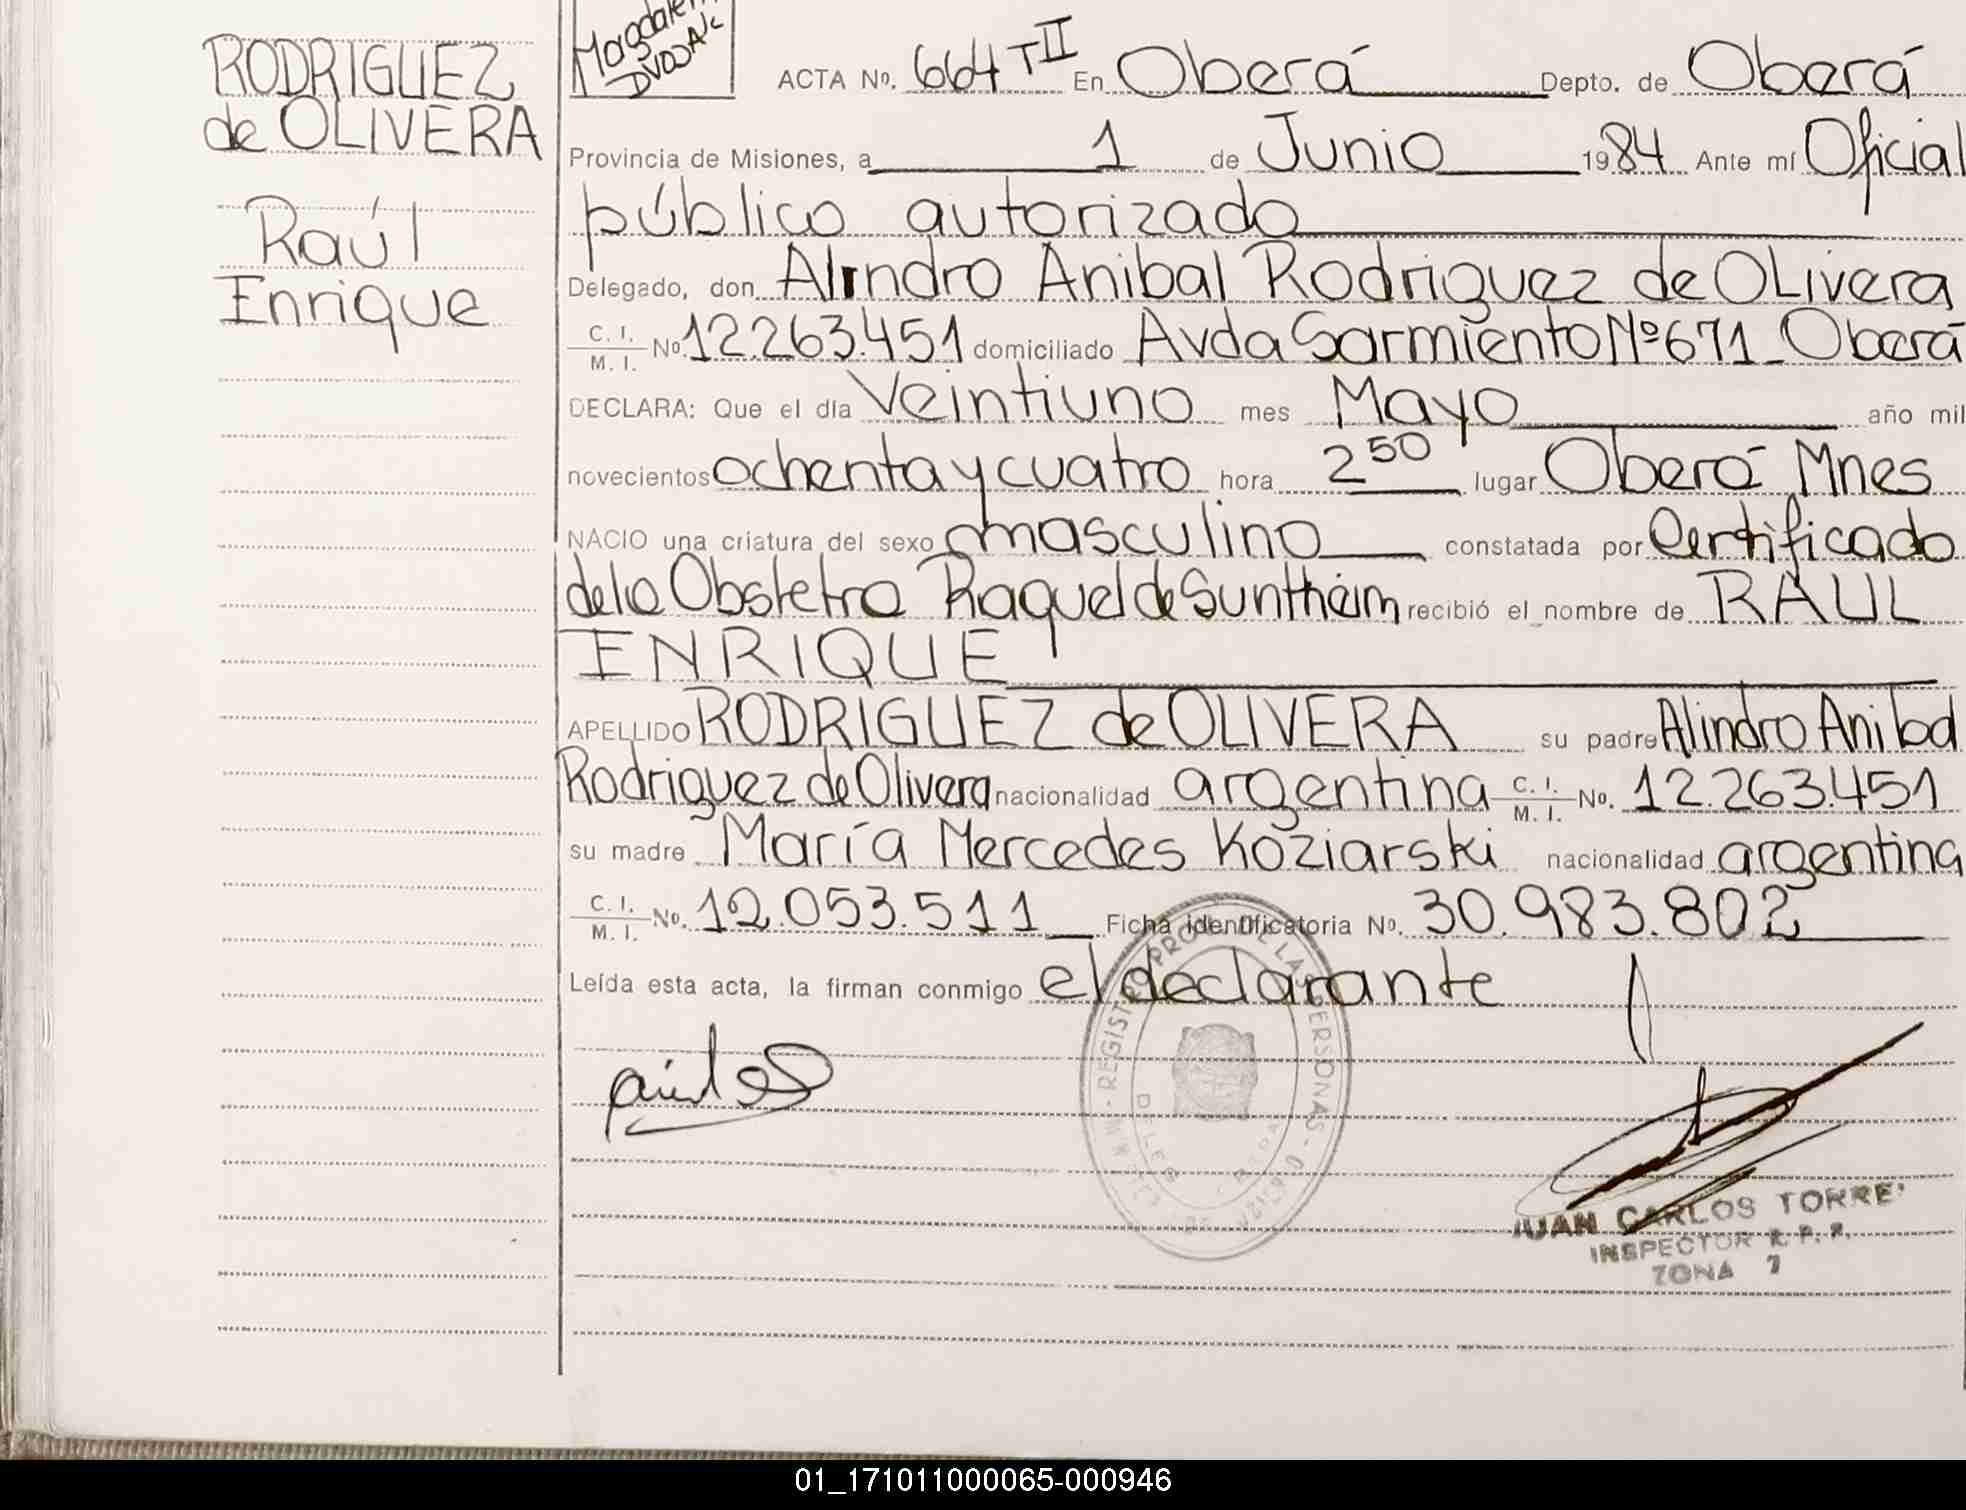 RODRIGUEZ
de OLIVERA
Raúl
Enrique
ACTA No. 664 TII En Oberá Depto. de Oberá
Provincia de Misiones, a 1 de Junio 1984 Ante mí Oficial
público autorizado
Delegado, don Alindro Anibal Rodriguez de OLivera
C. I. / M. I. No. 12.263.451 domiciliado Avda Sarmiento Nº 671_Oberá
DECLARA: Que el día Veintiuno mes Mayo año mil
novecientos ochenta y cuatro hora 2 50 lugar Oberá Mnes
NACIO una criatura del sexo masculino constatada por Certificado
de la Obstetra Raquel de Suntheim recibió el nombre de RAUL
ENRIQUE
APELLIDO RODRIGUEZ de OLIVERA su padre Alindro Anibal
Rodriguez de Olivera nacionalidad argentina C. I. / M. I. No. 12.263.451
su madre María Mercedes Koziarski nacionalidad argentina
C. I. / M. I. No. 12.053.511 Ficha identificatoria No. 30.983.802
Leída esta acta, la firman conmigo el declarante
REGISTRO PROV. DE LAS PERSONAS
JUAN CARLOS TORRE
INSPECTOR R. P. P.
ZONA 7
01_171011000065-000946